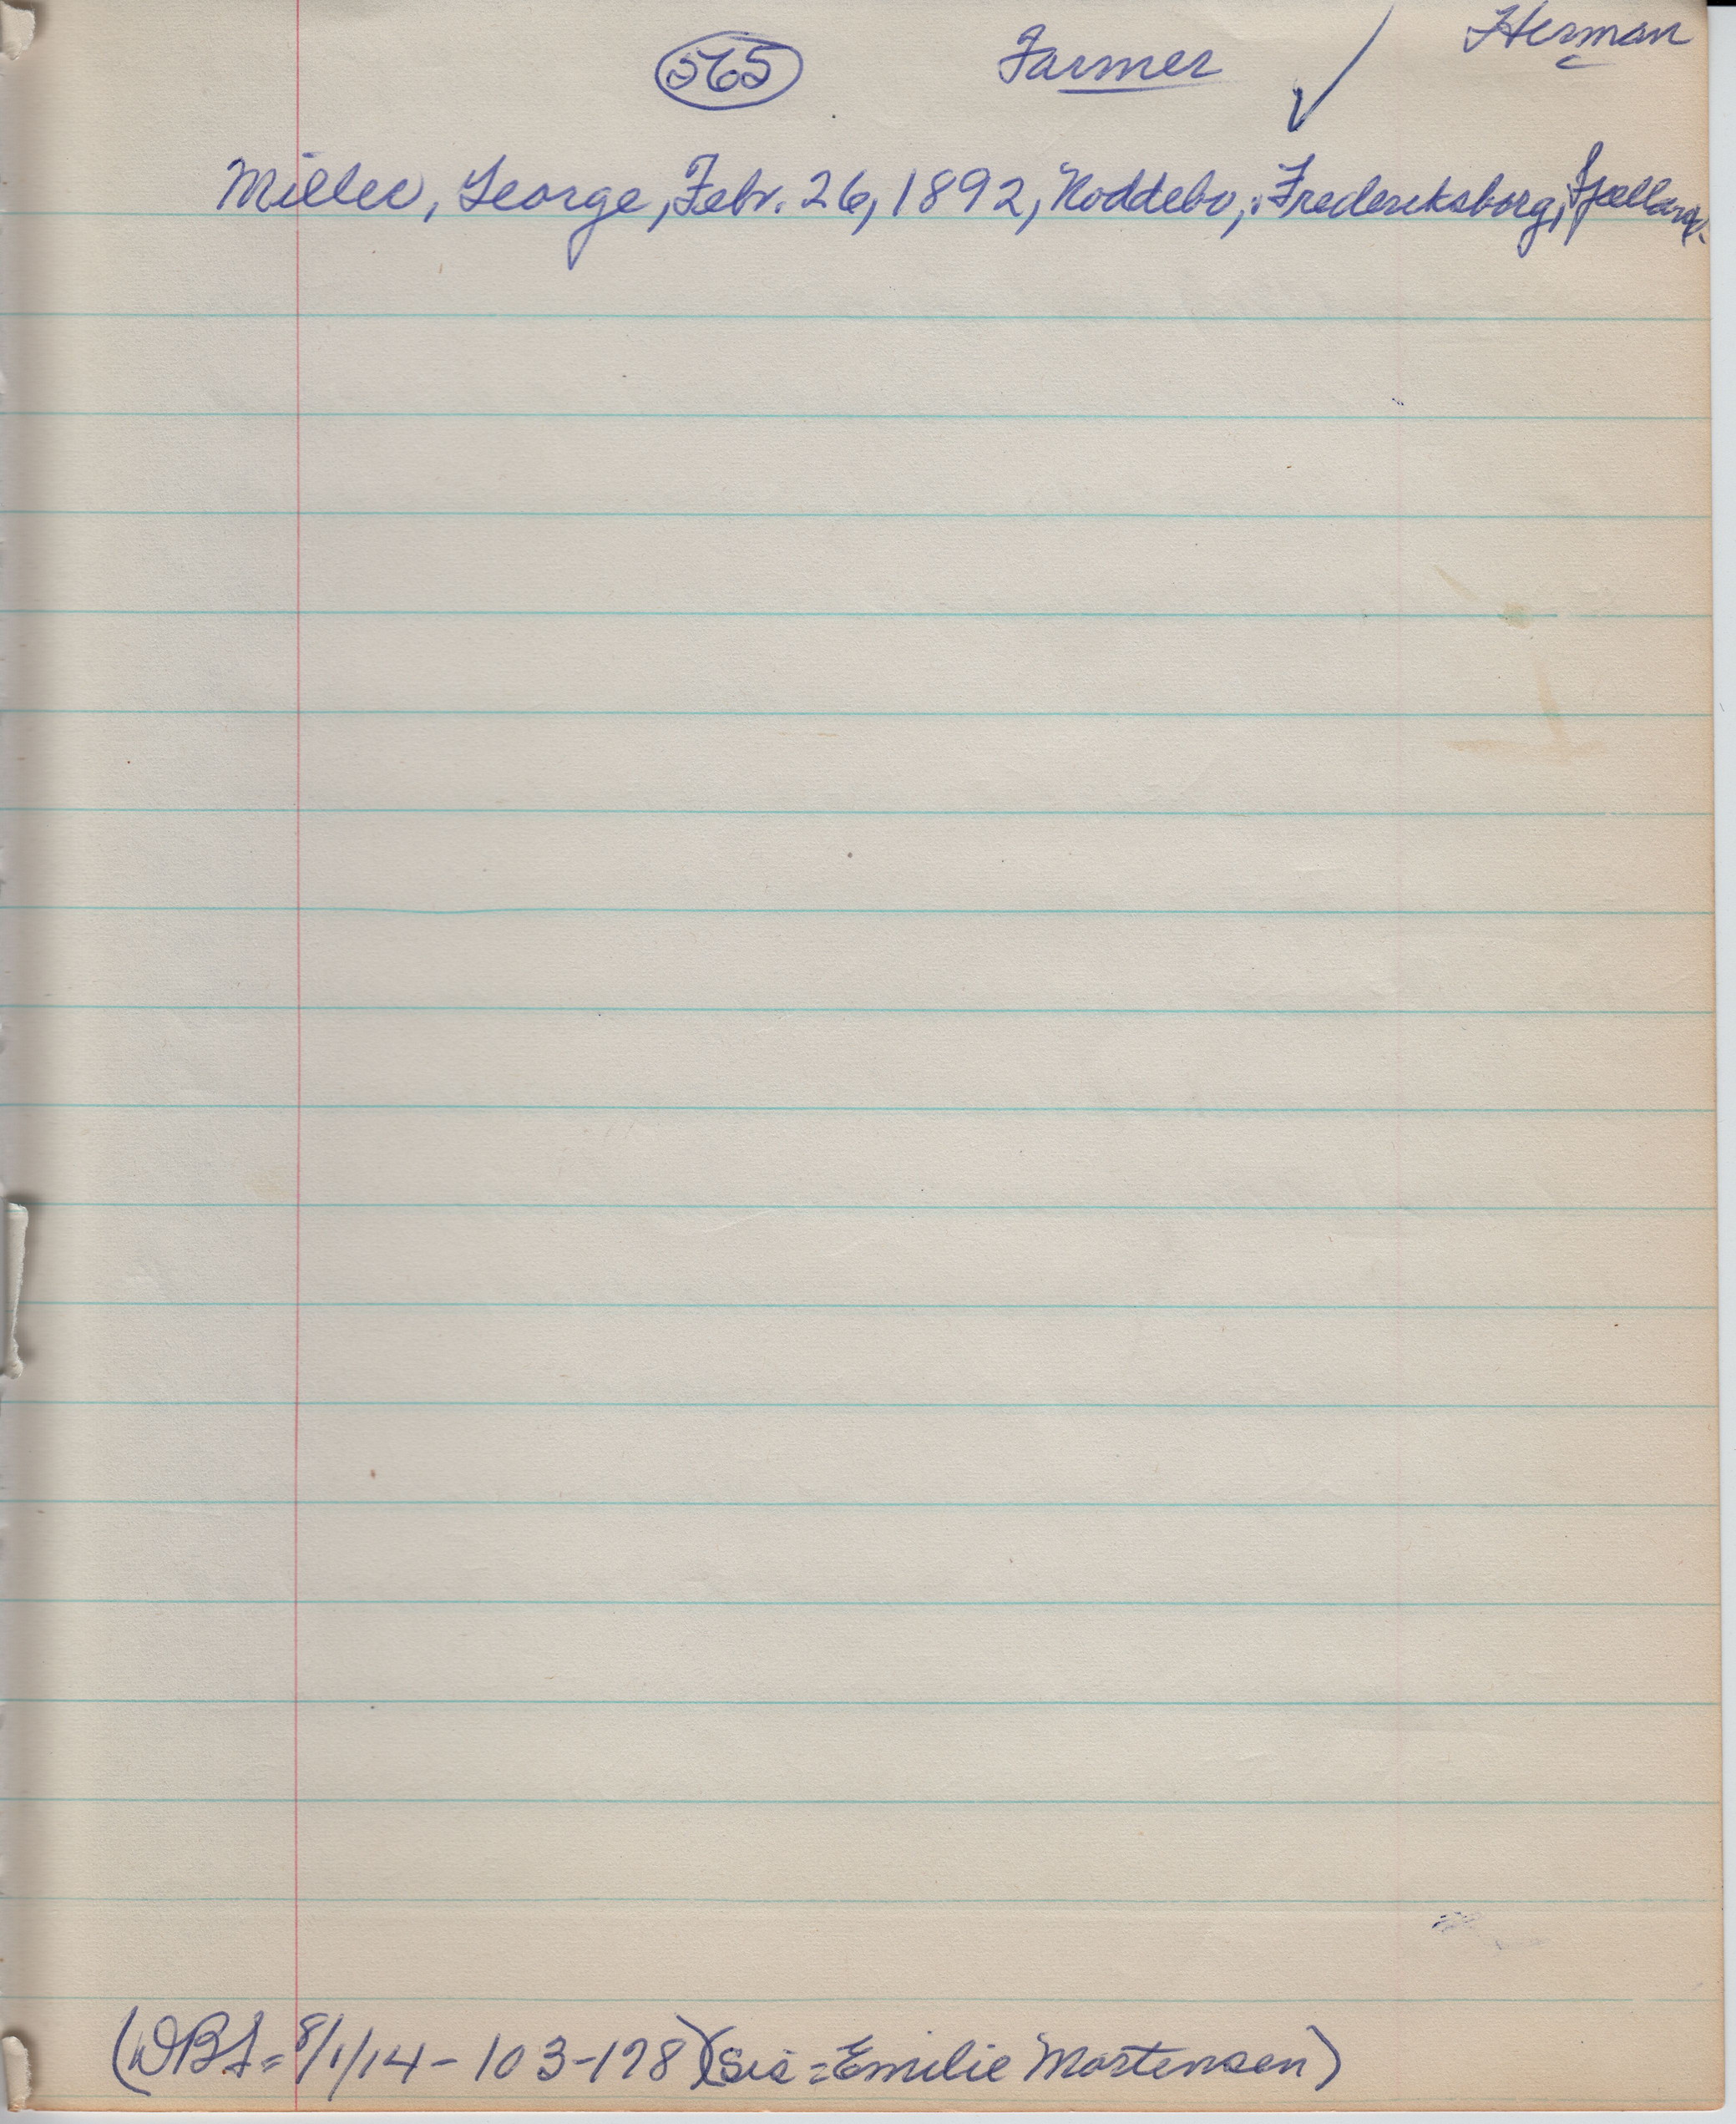 565 Farmer ✓ Herman
Miller, George, Febr. 26, 1892, Noddebo, Frederiksborg, Sjælland.
(DBS=8/1/14-103-198)(sis=Emilie Mortensen)